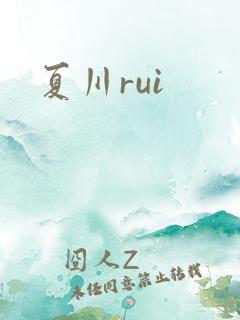 夏川rui
囧人Z
未经同意禁止转载